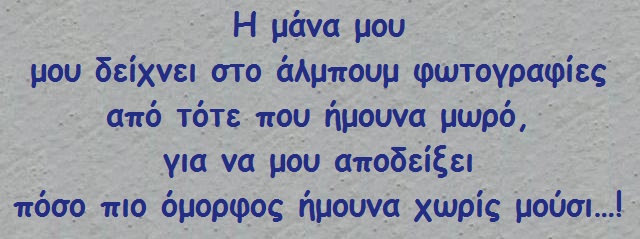 Η μάνα μου
μου δείχνει στο άλμπουμ φωτογραφίες
από τότε που ήμουνα μωρό,
για να μου αποδείξει
πόσο πιο όμορφος ήμουνα χωρίς μούσι...!